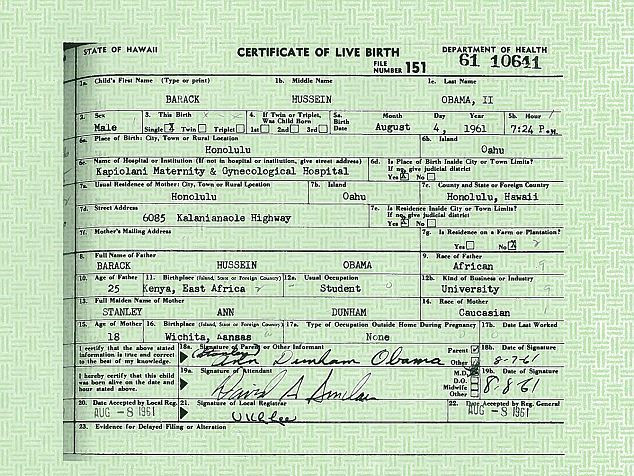 STATE OF HAWAII CERTIFICATE OF LIVE BIRTH DEPARTMENT OF HEALTH
FILE NUMBER 151 61 10641
1a. Child's First Name (Type or print) 1b. Middle Name 1c. Last Name
BARACK HUSSEIN OBAMA, II
2. Sex 3. This Birth 4. If Twin or Triplet, Was Child Born 5a. Birth Date Month Day Year 5b. Hour
Male Single X Twin Triplet 1st 2nd 3rd August 4, 1961 7:24 P.M.
6a. Place of Birth: City, Town or Rural Location 6b. Island
Honolulu Oahu
6c. Name of Hospital or Institution (If not in hospital or institution, give street address) 6d. Is Place of Birth Inside City or Town Limits? If no, give judicial district
Kapiolani Maternity & Gynecological Hospital Yes X No
7a. Usual Residence of Mother: City, Town or Rural Location 7b. Island 7c. County and State or Foreign Country
Honolulu Oahu Honolulu, Hawaii
7d. Street Address 7e. Is Residence Inside City or Town Limits? If no, give judicial district
6085 Kalanianaole Highway Yes X No
7f. Mother's Mailing Address 7g. Is Residence on a Farm or Plantation?
Yes No X
8. Full Name of Father 9. Race of Father
BARACK HUSSEIN OBAMA African 9
10. Age of Father 11. Birthplace (Island, State or Foreign Country) 12a. Usual Occupation 12b. Kind of Business or Industry
25 Kenya, East Africa Student 0 University 9
13. Full Maiden Name of Mother 14. Race of Mother
STANLEY ANN DUNHAM Caucasian
15. Age of Mother 16. Birthplace (Island, State or Foreign Country) 17a. Type of Occupation Outside Home During Pregnancy 17b. Date Last Worked
18 Wichita, Kansas None
I certify that the above stated information is true and correct to the best of my knowledge. 18a. Signature of Parent or Other Informant Parent Other 18b. Date of Signature
(Stanley) Ann Dunham Obama 8-7-61
I hereby certify that this child was born alive on the date and hour stated above. 19a. Signature of Attendant M.D. D.O. Midwife Other 19b. Date of Signature
David A Sinclair 8-8-61
20. Date Accepted by Local Reg. 21. Signature of Local Registrar 22. Date Accepted by Reg. General
AUG -8 1961 U K L Lee AUG -8 1961
23. Evidence for Delayed Filing or Alteration